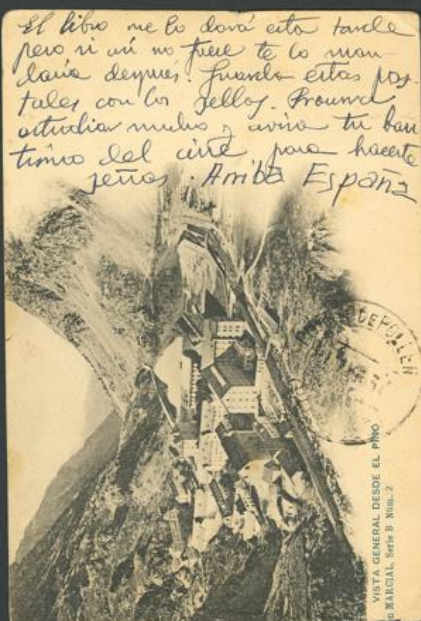 El libro me lo dará esta tarde
pero si así no fuere te lo man
daría después. Guarda estas pos-
tales con los sellos. Procura
estudiar mucho y avisa tu
del cine para hacerte
señas. Arriba España
DEPOLLEN
VISTA GENERAL DESDE EL PINO
MARCIAL, Serie B Núm. 2